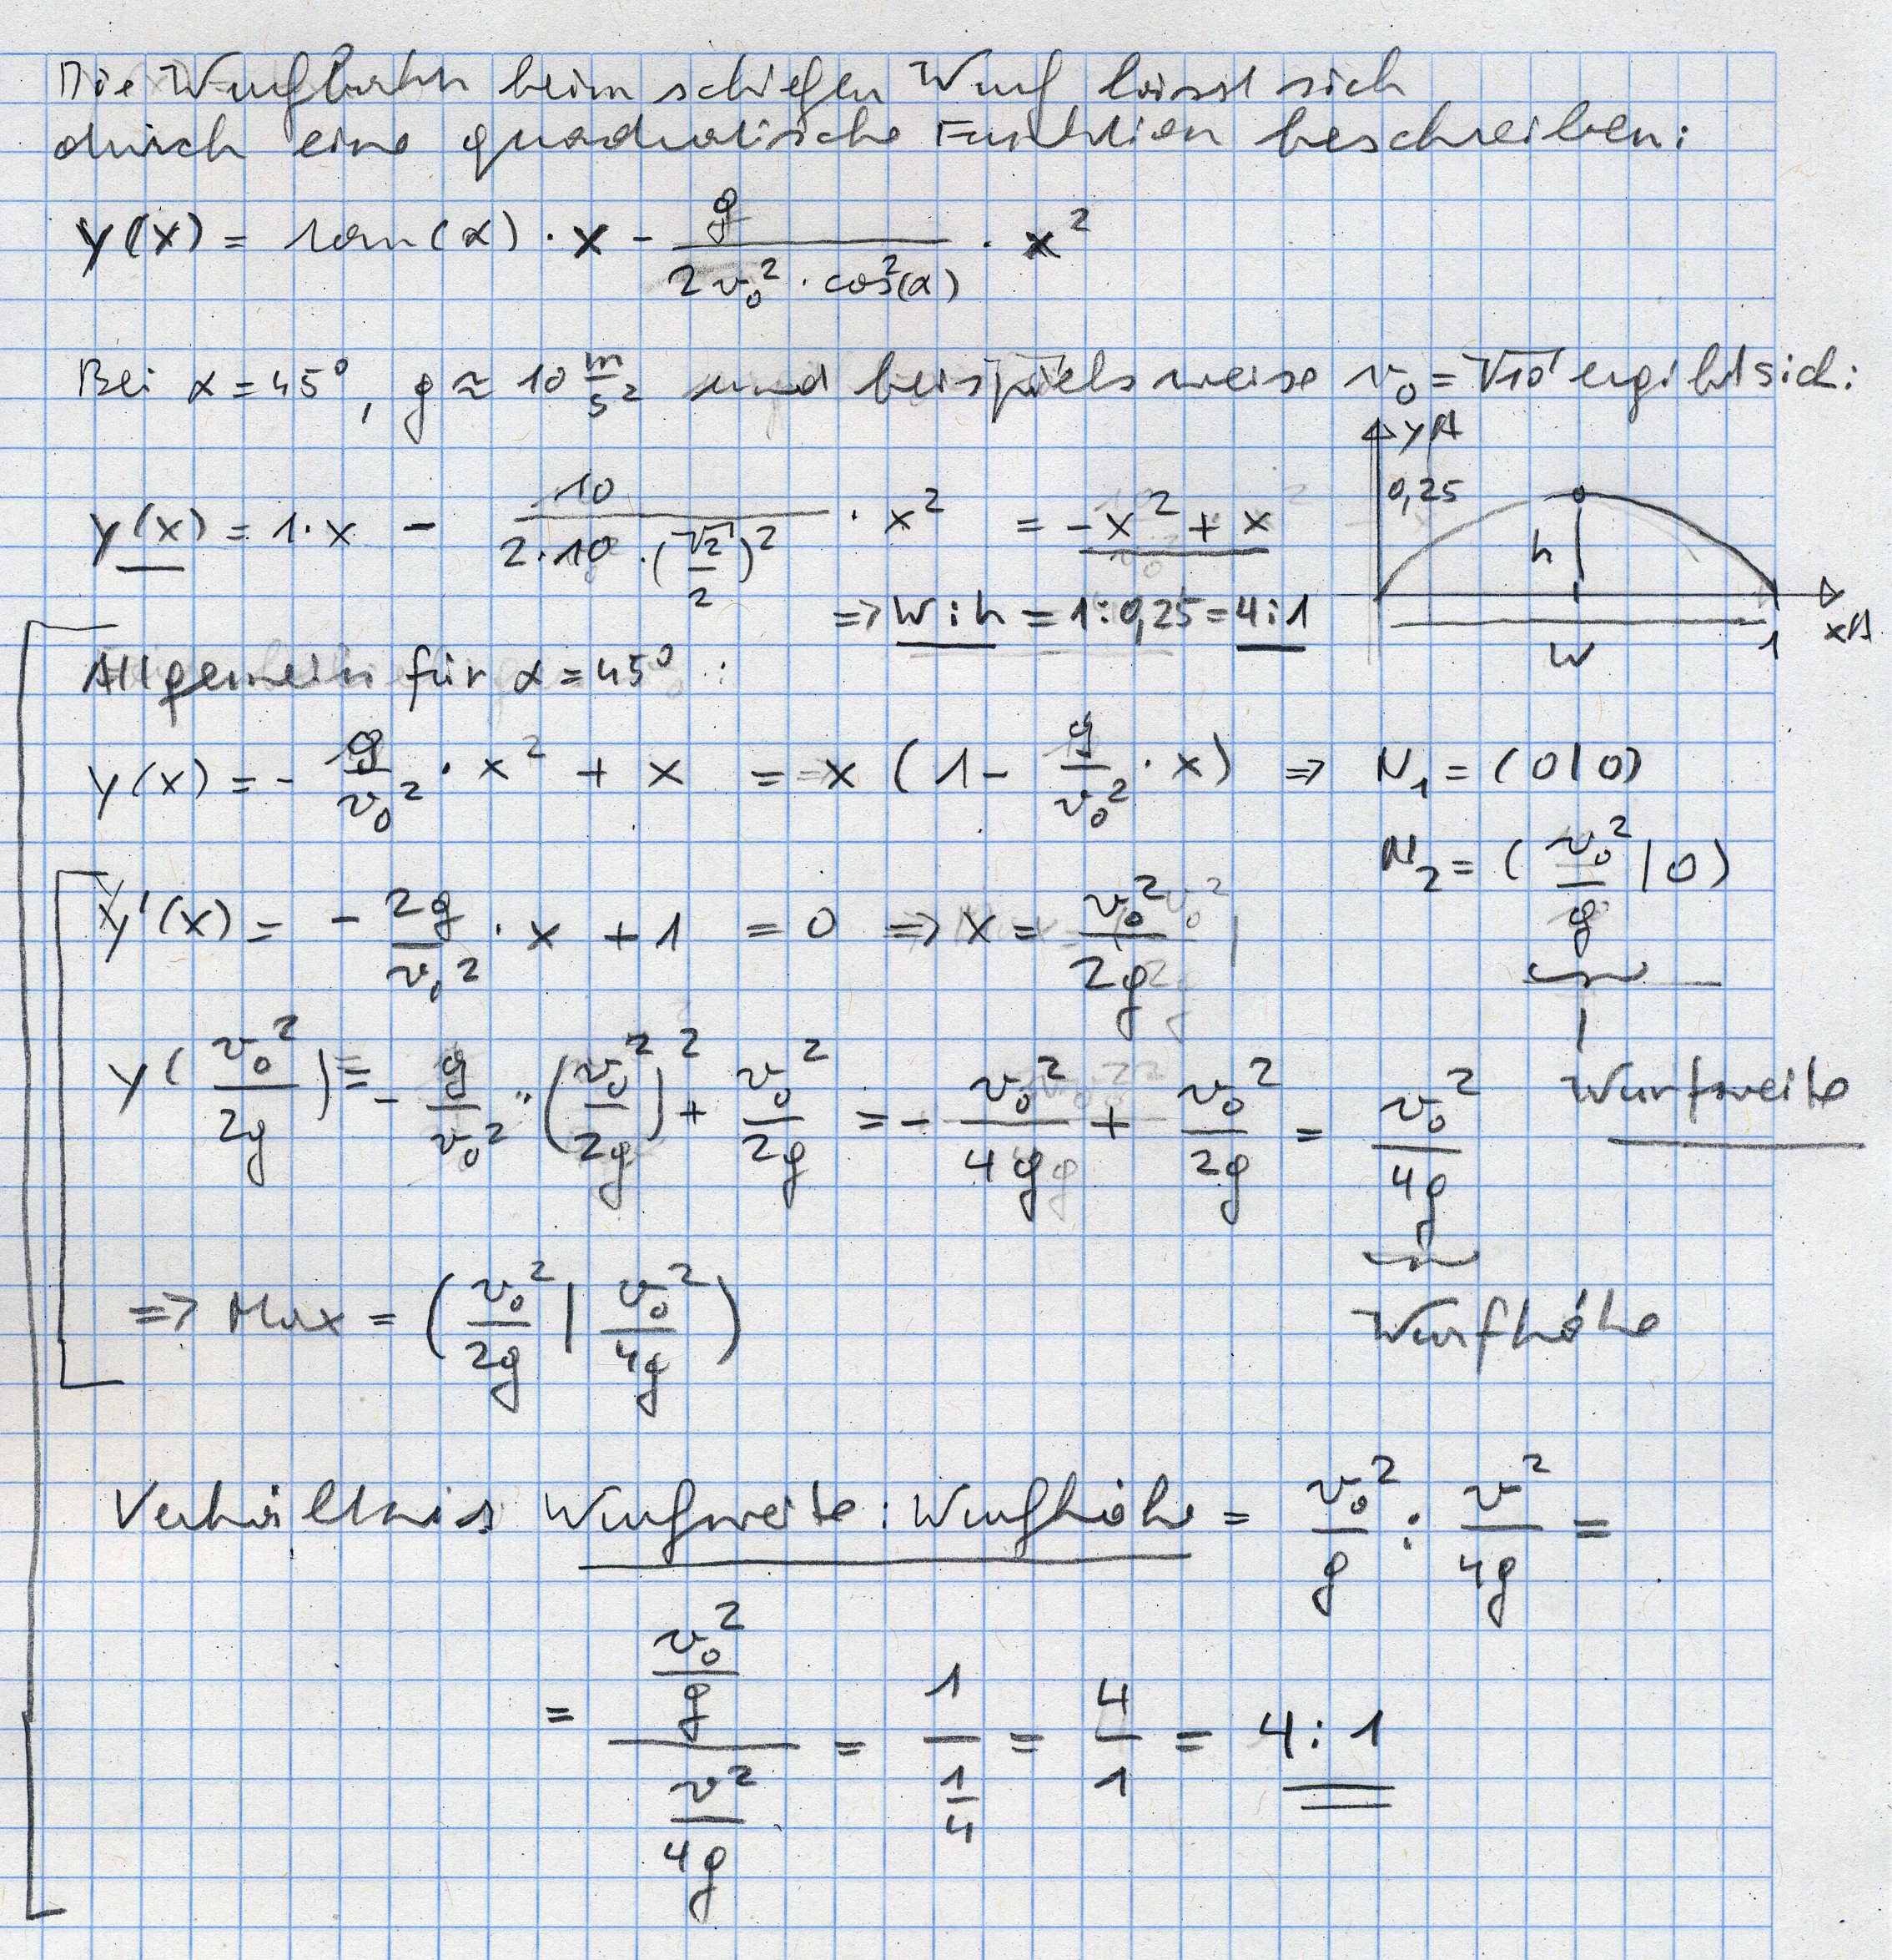 Die Wurfbahn beim schiefen Wurf lässt sich
durch eine quadratische Funktion beschreiben:
y(x) = tan(α) · x - g/(2v₀² · cos²(α)) · x²
Bei α = 45°, g ≈ 10 m/s² und beispielsweise v₀ = √10 ergibt sich:
y(x) = 1·x - 10/(2·10·(√2/2)²) · x² = -x² + x
y
0,25
h
w
1
x
=> W:h = 1:0,25 = 4:1
Allgemein für α = 45°:
y(x) = - g/v₀² · x² + x = x (1 - g/v₀² · x) => N₁ = (0|0)
N₂ = (v₀²/g | 0)
Wurfweite
y'(x) = - 2g/v₀² · x + 1 = 0 => x = v₀²/2g
y(v₀²/2g) = - g/v₀² · (v₀²/2g)² + v₀²/2g = - v₀²/4g + v₀²/2g = v₀²/4g
Wurfhöhe
=> Max = (v₀²/2g | v₀²/4g)
Verhältnis Wurfweite : Wurfhöhe = v₀²/g : v²/4g =
= (v₀²/g)/(v²/4g) = 1/(1/4) = 4/1 = 4:1